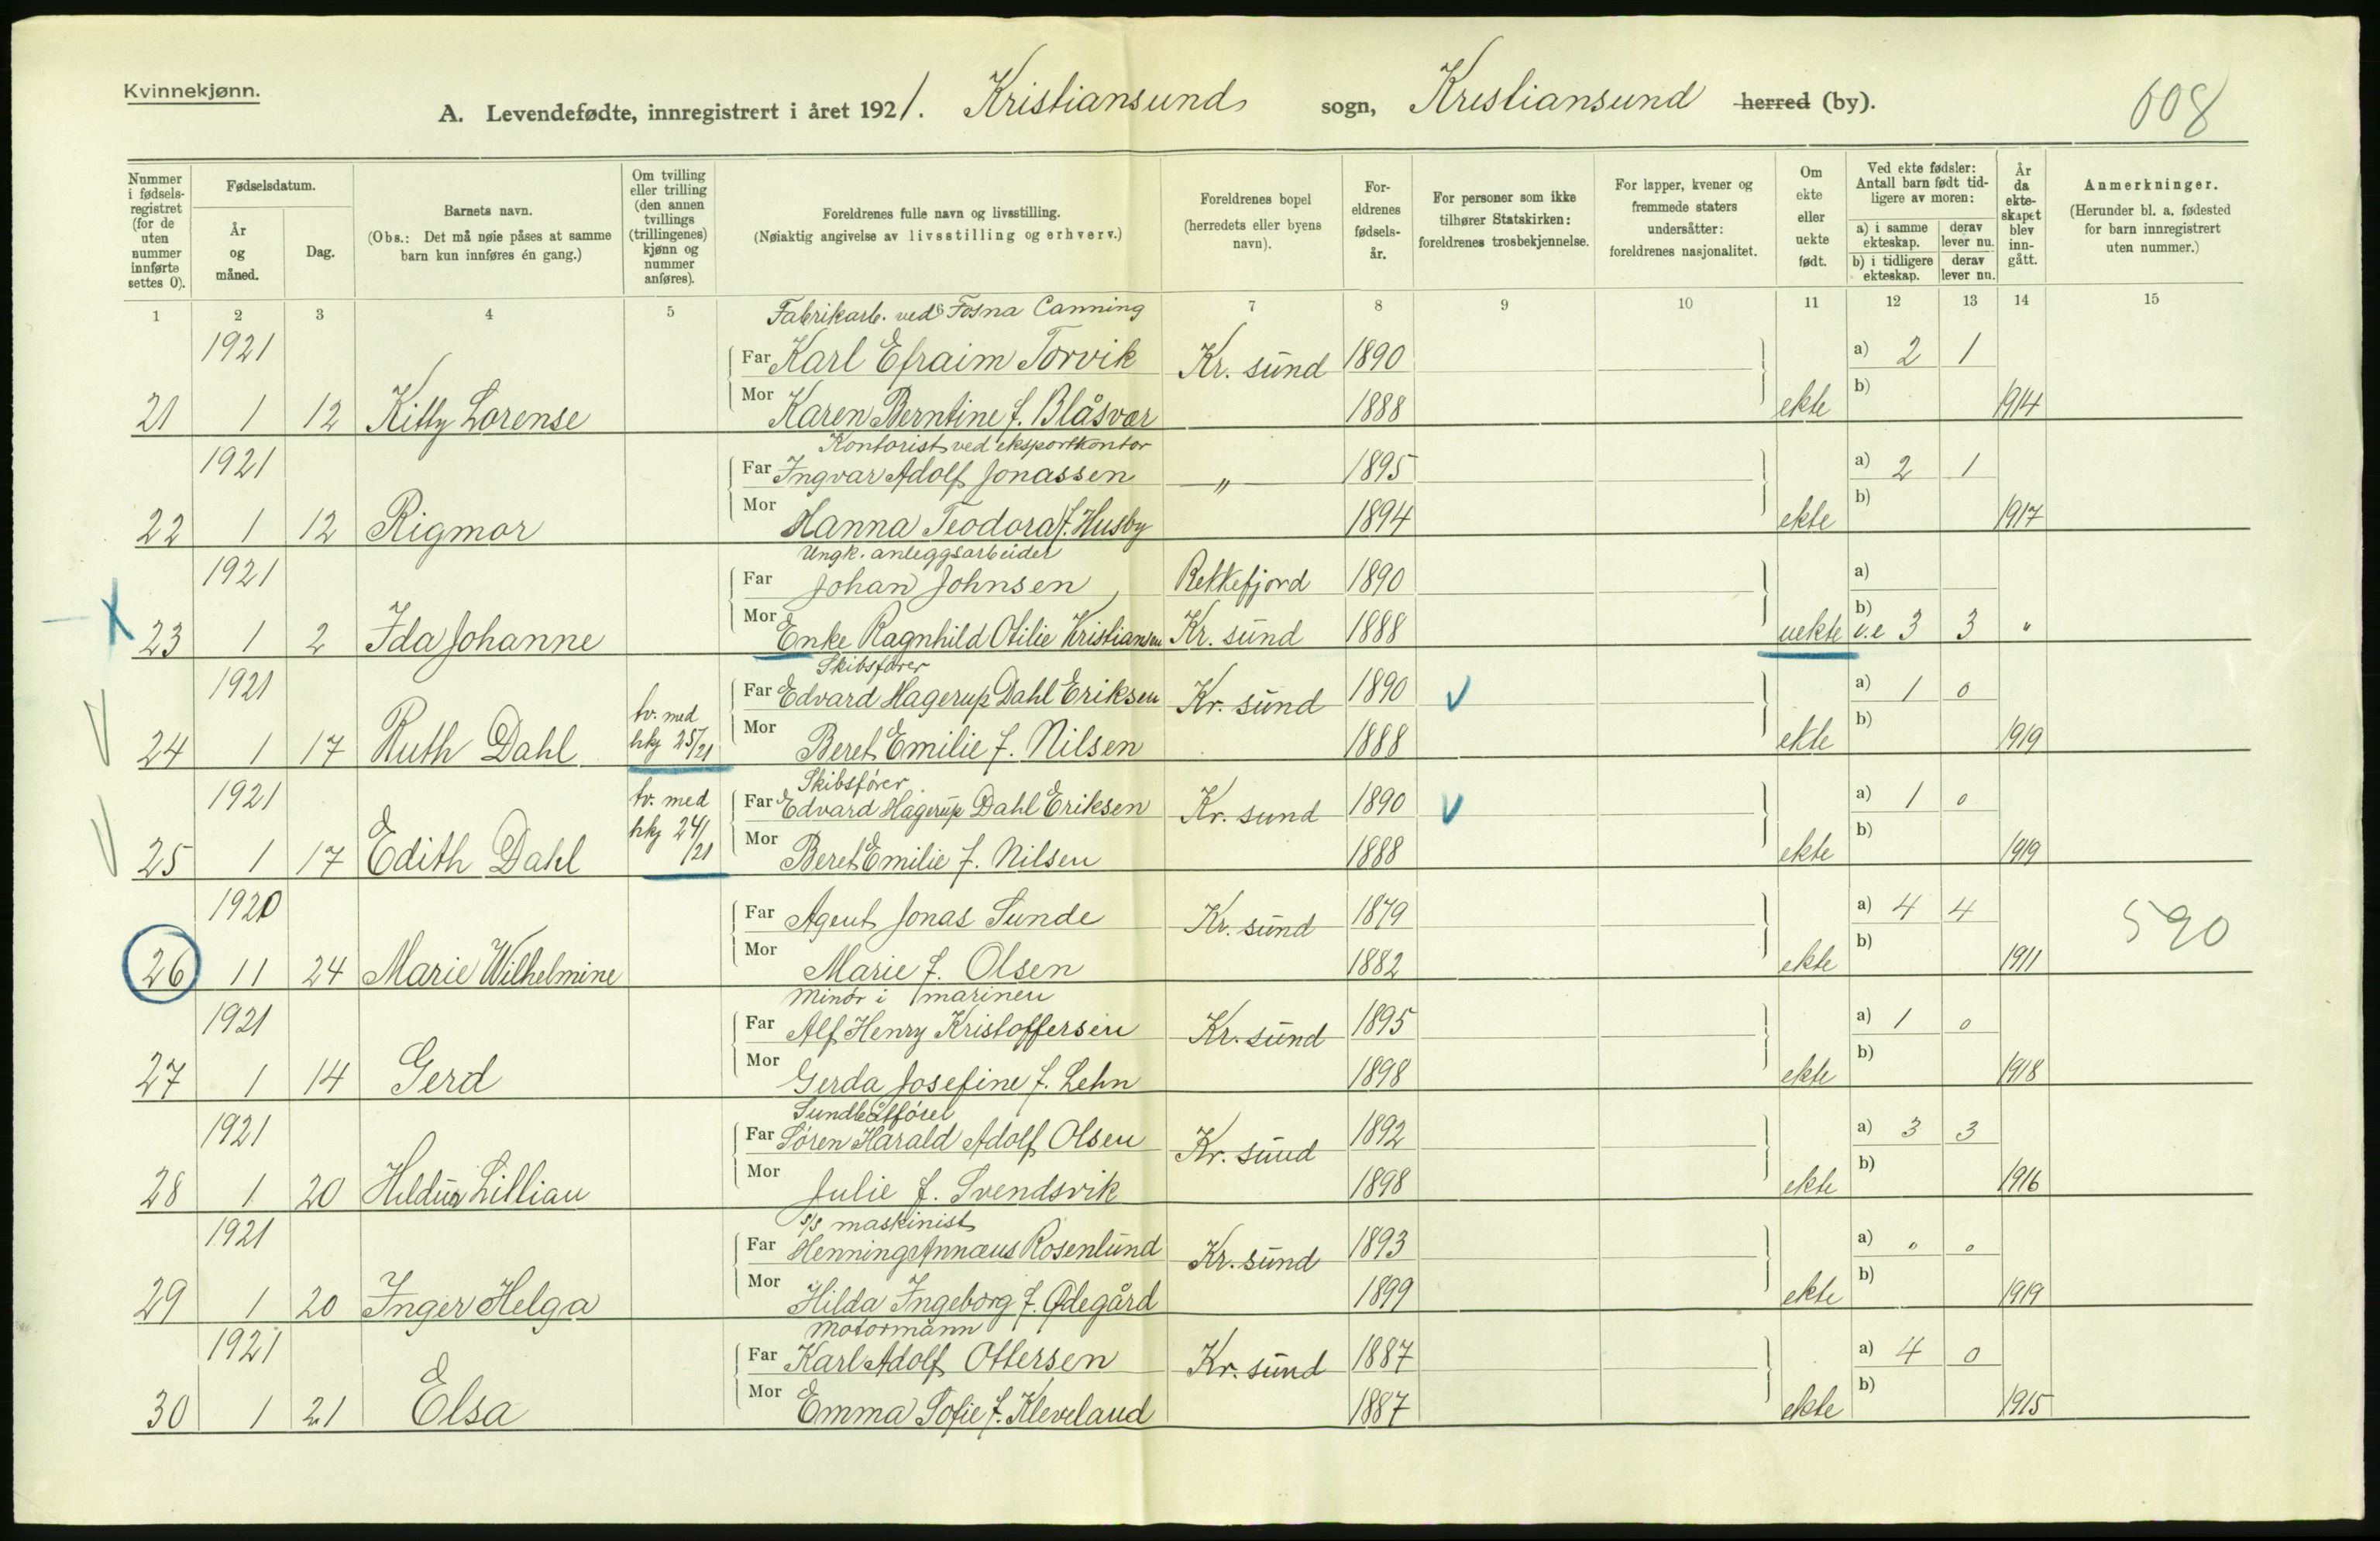 Kvinnekjønn.
A. Levendefødte, innregistrert i året 1921. Kristiansund sogn, Kristiansund herred (by).
608
Nummer i fødsels-registret (for de uten nummer innførte settes 0).
Fødselsdatum.
År og måned.
Dag.
Barnets navn.
(Obs.: Det må nøie påses at samme barn kun innføres én gang.)
Om tvilling eller trilling (den annen tvillings (trillingenes) kjønn og nummer anføres).
Foreldrenes fulle navn og livsstilling.
(Nøiaktig angivelse av livsstilling og erhverv.)
Foreldrenes bopel (herredets eller byens navn).
For-eldrenes fødsels-år.
For personer som ikke tilhører Statskirken: foreldrenes trosbekjennelse.
For lapper, kvener og fremmede staters undersåtter: foreldrenes nasjonalitet.
Om ekte eller uekte født.
Ved ekte fødsler: Antall barn født tid-ligere av moren:
a) i samme ekteskap.
derav lever nu.
b) i tidligere ekteskap.
derav lever nu.
År da ekte-skapet blev inn-gått.
Anmerkninger.
(Herunder bl. a. fødested for barn innregistrert uten nummer.)
1 2 3 4 5 7 8 9 10 11 12 13 14 15
Fabrikarb. ved Fosna Canning
1921 Far Karl Efraim Torvik Kr. sund 1890 a) 2 1
21 1 12 Kitty Lorense Mor Karen Berntine f. Blåsvær 1888 ekte b) 1914
Kontorist ved eksportkontor
1921 Far Ingvar Adolf Jonassen " 1895 a) 2 1
22 1 12 Rigmor Mor Hanna Teodora f. Husby 1894 ekte b) 1917
Ungk. anleggsarbeider
1921 Far Johan Johnsen, Rekkefjord 1890 a)
23 1 2 Ida Johanne Mor Enke Ragnhild Otilie Kristiansen Kr. sund 1888 uekte b) i.e 3 3 "
Skibsfører
1921 tv. med Far Edvard Hagerup Dahl Eriksen Kr. sund 1890 a) 1 0
24 1 17 Ruth Dahl hkj 25/21 Mor Beret Emilie f. Nilsen 1888 ekte b) 1919
Skibsfører
1921 tv. med Far Edvard Hagerup Dahl Eriksen Kr. sund 1890 a) 1 0
25 1 17 Edith Dahl hkj 24/21 Mor Beret Emilie f. Nilsen 1888 ekte b) 1919
1920 Far Agent Jonas Sunde Kr. sund 1879 a) 4 4 590
26 11 24 Marie Wilhelmine Mor Marie f. Olsen 1882 ekte b) 1911
Minør i marinen
1921 Far Alf Henry Kristoffersen Kr. sund 1895 a) 1 0
27 1 14 Gerd Mor Gerda Josefine f. Lehn 1898 ekte b) 1918
Sundbåtfører
1921 Far Søren Harald Adolf Olsen Kr. sund 1892 a) 3 3
28 1 20 Hildur Lillian Mor Julie f. Svendsvik 1898 ekte b) 1916
s/s maskinist
1921 Far Henning Annæus Rosenlund Kr. sund 1893 a) " "
29 1 20 Inger Helga Mor Hilda Ingeborg f. Ødegård 1899 ekte b) 1919
Motormann
1921 Far Karl Adolf Ottersen Kr. sund 1887 a) 4 0
30 1 21 Elsa Mor Emma Sofie f. Kleveland 1887 ekte b) 1915